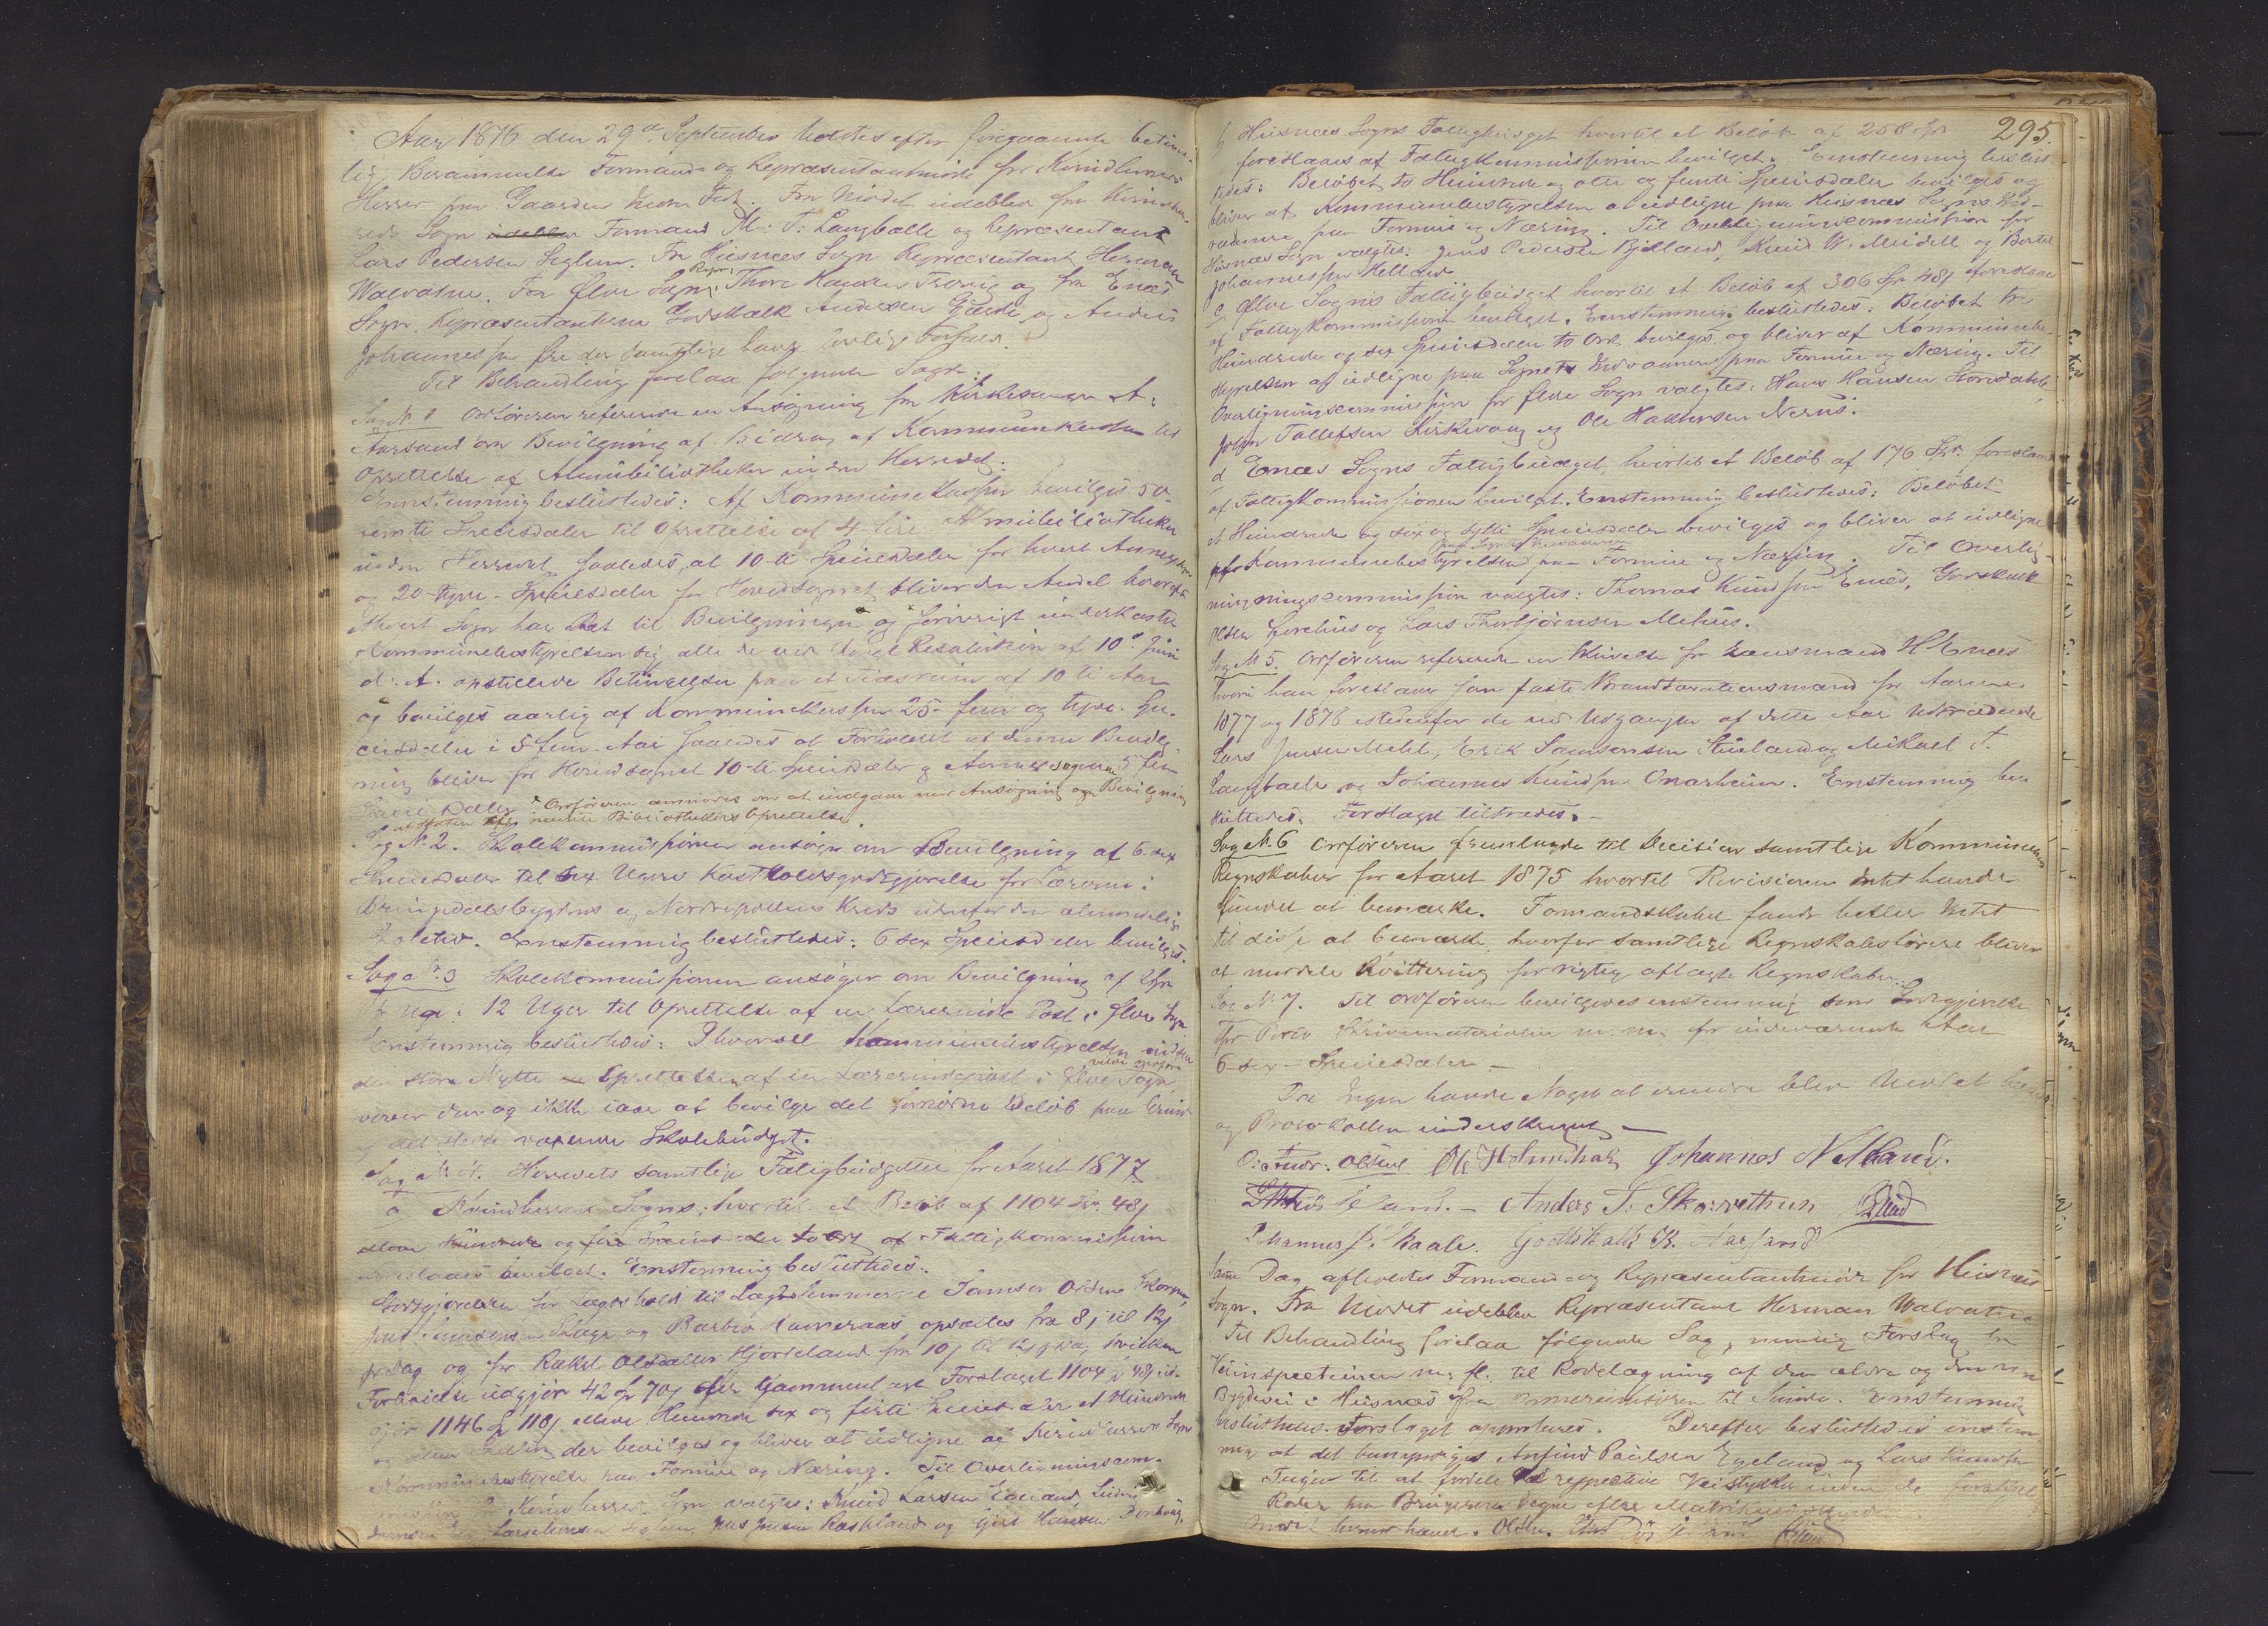 Aar 1876 den 29de September holdtes efter foregaaende betime-
lig Berammelse Formands og Repræsentantmöde for Kvindherreds
Herred paa Gaarden Nedre Fet. Fra Mödet udeblev fra Kvindher-
reds Sogn Formand M: T: Langballe og Repræsentant
Lars Pedersen Seglem. Fra Husnæs Sogn Repræsentant Herman
Valvatne. Fra Ølve Sogn Repr: Thore Hansen Tveite og fra Enæs
Sogn Repræsentanterne Godskalk Andersen Gjerde og Anders
Johannessen Øie der samtlige havde lovlige Forfald.
Til Behandling forelaa fölgende Sager:
Sag N. 1 Ordföreren refererede en Ansögning fra Kirkesanger A:
Aarsand om Bevilgning af Bidrag af Kommunekassen til
Oprettelse af Almubibliotheker inden Herredet.
Enstemmig besluttedes: Af Kommunekassen bevilges 50-
femti Speciesdaler til Oprettelse af 4 fire Almubibliotheker
inden Herredet saaledes, at 10-ti Speciesdaler for hvert Annexsogn
og 20-tyve-Speciesdaler for Hovedsognet bliver den Andel hvorpaa
ethvert Sogn har Ret til Bevilgningen og forövrigt underkaster
Kommunebestyrelsen sig alle de ved Kongl Resolution af 10de Juni
d: A. opstillede Betingelser paa et Tidsrum af 10 ti Aar
og bevilges aarlig af Kommunekassen 25- fem og tyve- Spe-
ciesdaler i 5 fem- Aar saaledes at Forholdet af denne Bevilg-
ning bliver for Hovedsognet 10-ti Speciesdaler og Annexsognene 5 fem
Speciesdaler * Ordföreren anmodes om at indgaae med Ansögning om Bevilgning
af Staten til nævnte Bibliothekers Oprettelse.
Sag N: 2. Skolekommissionen ansöger om Bevilgning af 6- sex
Speciesdaler til sex Ugers Kostholdsgodtgjörelse for Læreren i
Bringedalsbygdens og Nordrepollens Kreds udenfor den almindelige
Skoletid. Enstemmig besluttedes: 6 sex Speciesdaler bevilges.
Sag N: 3 Skolekommissionen ansöger om Bevilgning af 2 Spd
pr Uge i 12 Uger til Oprettelse af en Lærerinde Post i Ølve Sogn
Enstemmig besluttedes: Ihvorvel Kommunebestyrelsen indser
den store Nytte Oprettelsen af en Lærerindepost i Ølve Sogn vilde medföre
vover den sig ikke iaar at bevilge det fornödne Beløb paa Grund
af det store værende Skolebudget.
Sag N: 4. Herredets samtlige Fattigbudgetter for Aaret 1877
a, Kvindherreds Sogns; hvortil et Belöb af 1104 Spd 48 s
elleve Hundrede og fire Speciesdaler to Ort af Fattigkommissionen
foreslaaes bevilget. Enstemmig besluttedes:
Godtgjörelsen for Lægdshold til Lægdslemmerne Samson Olsen Skorpen,
Skaga og Barbro Kameraas opsættes fra 8 s til 12 s
pr Dag og for Rakel Olsdatter Hjorteland fra 10 s til 12 s pr Dag hvilken
Forhöielse udgjör 42 Spd 70 s der sammenlagt Forslaget 1104 Spd 48 s ud-
gjör 1146 Spd 118 s elleve Hundrede sex og firti Speciesdaler et Hundrede
og atten Skilling der bevilges og bliver at udligne af Kvindherreds Sogns
Kommunebestyrelse paa Formue og Næring. Til Overligningscom-
mission for Kvindherreds Sogn valgtes: Knud Larsen Egeland
Jens Jensen Røssland og Giert Hansen

295.
b Husnæs Sogns Fattigbudget hvortil et Belöb af 258 Spd
foreslaaes af Fattigkommissionen bevilget. Enstemmig beslut-
tedes: Beløbet to Hundrede og otte og femti Speciesdaler bevilges og
bliver af Kommunebestyrelsen at udligne paa Husnæs Sogns Bed-
vedmere paa Formue og Næring. Til Overligningscommission for
Husnæs Sogn valgtes: Jens Pedersen Bjelland, Knud W. Meidell og Bertel
Johannessen Helland
c Ølve Sogns Fattigbudget hvortil et Belöb af 306 Spd 48 s foreslaaes
af Fattigkommissionen bevilget. Enstemmig besluttedes: Belöbet tre
Hundrede og sex Speciesdaler to Ort bevilges og bliver af Kommunebe-
styrelsen at udligne paa Sognets Vedkommende paa Formue og Næring. Til
Overligningscommission for Ølve Sogn valgtes: Hans Hansen Storedahl,
John Tollefsen Kirkevaag og Ole Haktorsen Neruns.
d Enæs Sogns Fattigbudget, hvortil et Belöb af 176 Spd foreslaaes
af Fattigkommissionen bevilget. Enstemmig besluttedes: Belöbet
et Hundrede og sex og sytti Speciesdaler bevilges og bliver at udligne
af Kommunebestyrelsen paa Formue og Næring. Til Overlig-
ningscommission valgtes: Thomas Knudsen Enæs, Godskalk
Olsen og Lars Thorbjörnsen Mehus.
Sag N 5. Ordföreren refererede en Skrivelse fra Lensmand H Enæs
hvori han foreslaaer som faste Brandtaxationsmænd for Aarene
1877 og 1878 istedenfor de ved Udgangen af dette Aar Udtrædende
Lars Jensen Mehl, Erik Samsonsen Skeieland og Mikael T.
Langballe og Johannes Knudsen Onarheim. Enstemmig be-
sluttedes. Forslaget tiltrædes.-
Sag N. 6 Ordföreren fremlagde til Decision samtlige Kommunens
Regnskaber for Aaret 1875 hvortil Revisionen intet havde
fundet at bemærke. Formandskabet fandt heller Intet
til disse at bemærke, hvorfor samtlige Regnskabsförere bliver
at meddele Kvittering for rigtig aflagte Regnskaber.
Sag N 7. Til Ordföreren bevilgedes enstemmig som Godtgjörelse
for Porto Skrivematerialier m. m. for indeværende Aar
6- sex- Speciesdaler -
Da Ingen havde Noget at erindre blev Mödet hævet
og Protokollen underskrevet -
O: Andr: Olsen Ols Holmedhal Johannes N Øland.
Anders T: Skarvethun
Johannes J: Kaale. Godtskalk K. Aarsand
Samme Dag afholdtes Formands og Repræsentantmöde for Husnæs
Sogn. Fra Mödet udeblev Repræsentant Herman Valvatne
Til Behandling forelaa fölgende Sag, nemlig Forslag fra
Veiinspecteuren m. fl. til Rodelægning af den ældre og den nye
Bygdevei i Husnæs fra til Sunde. Enstemmig
besluttedes. Forslaget approberes. Derefter besluttedes enstem-
mig at det henpaalægges Anfind Poulsen Egeland og Lars Knudsen
Tungen til at fordele de respective Veistykker inden de forskjellige
Roder paa Brugernes Vegne efter Matrikelskylden
Mödet hermed hævet. Olsen.